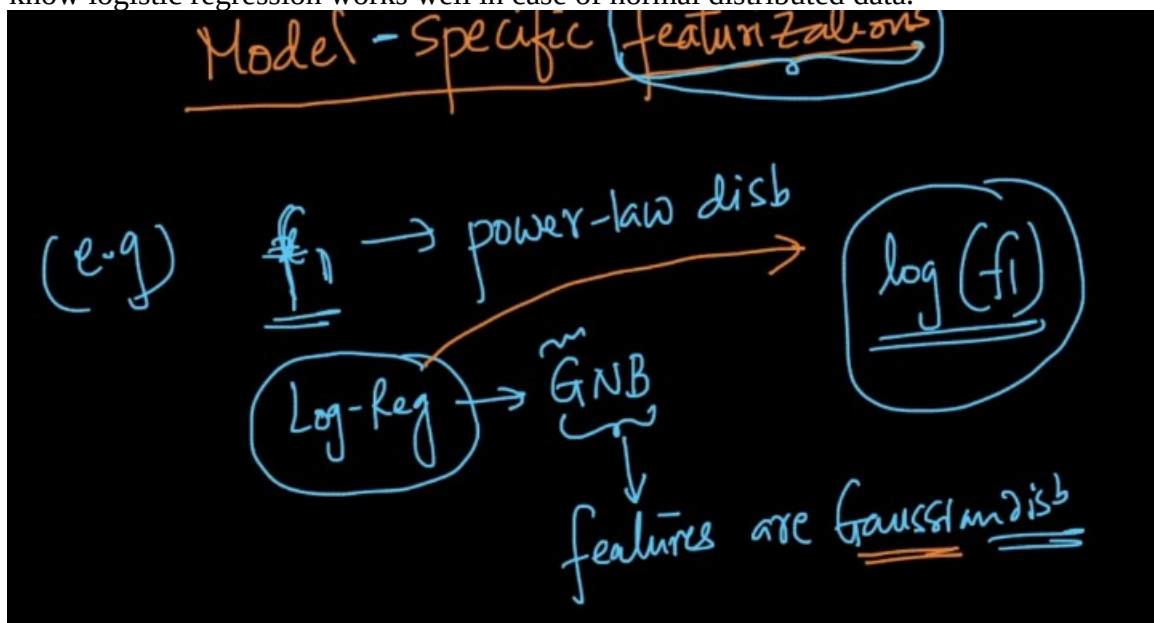 know logistic regression works well in case of normal distributed data.
Model - Specific featurizations
(e.g) f1 → power-law disb
log (f1)
Log-Reg → GNB
features are Gaussian disb